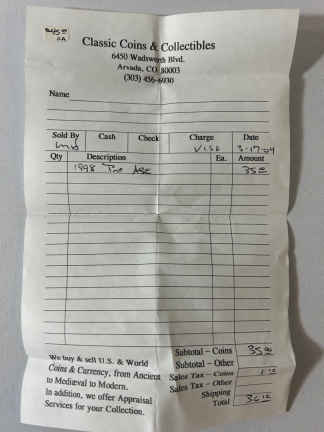 $45.00
EA
Classic Coins & Collectibles
6450 Wadsworth Blvd.
Arvada, CO 80003
(303) 456-6030
Name
Sold By Cash Check Charge Date
VISA 3-17-09
Qty Description Ea. Amount
1998 ASE 35.00
We buy & sell U.S. & World
Coins & Currency, from Ancient
to Mediæval to Modern.
In addition, we offer Appraisal
Services for your Collection.
Subtotal – Coins 35.00
Subtotal – Other
Sales Tax – Coins
Sales Tax – Other
Shipping
Total